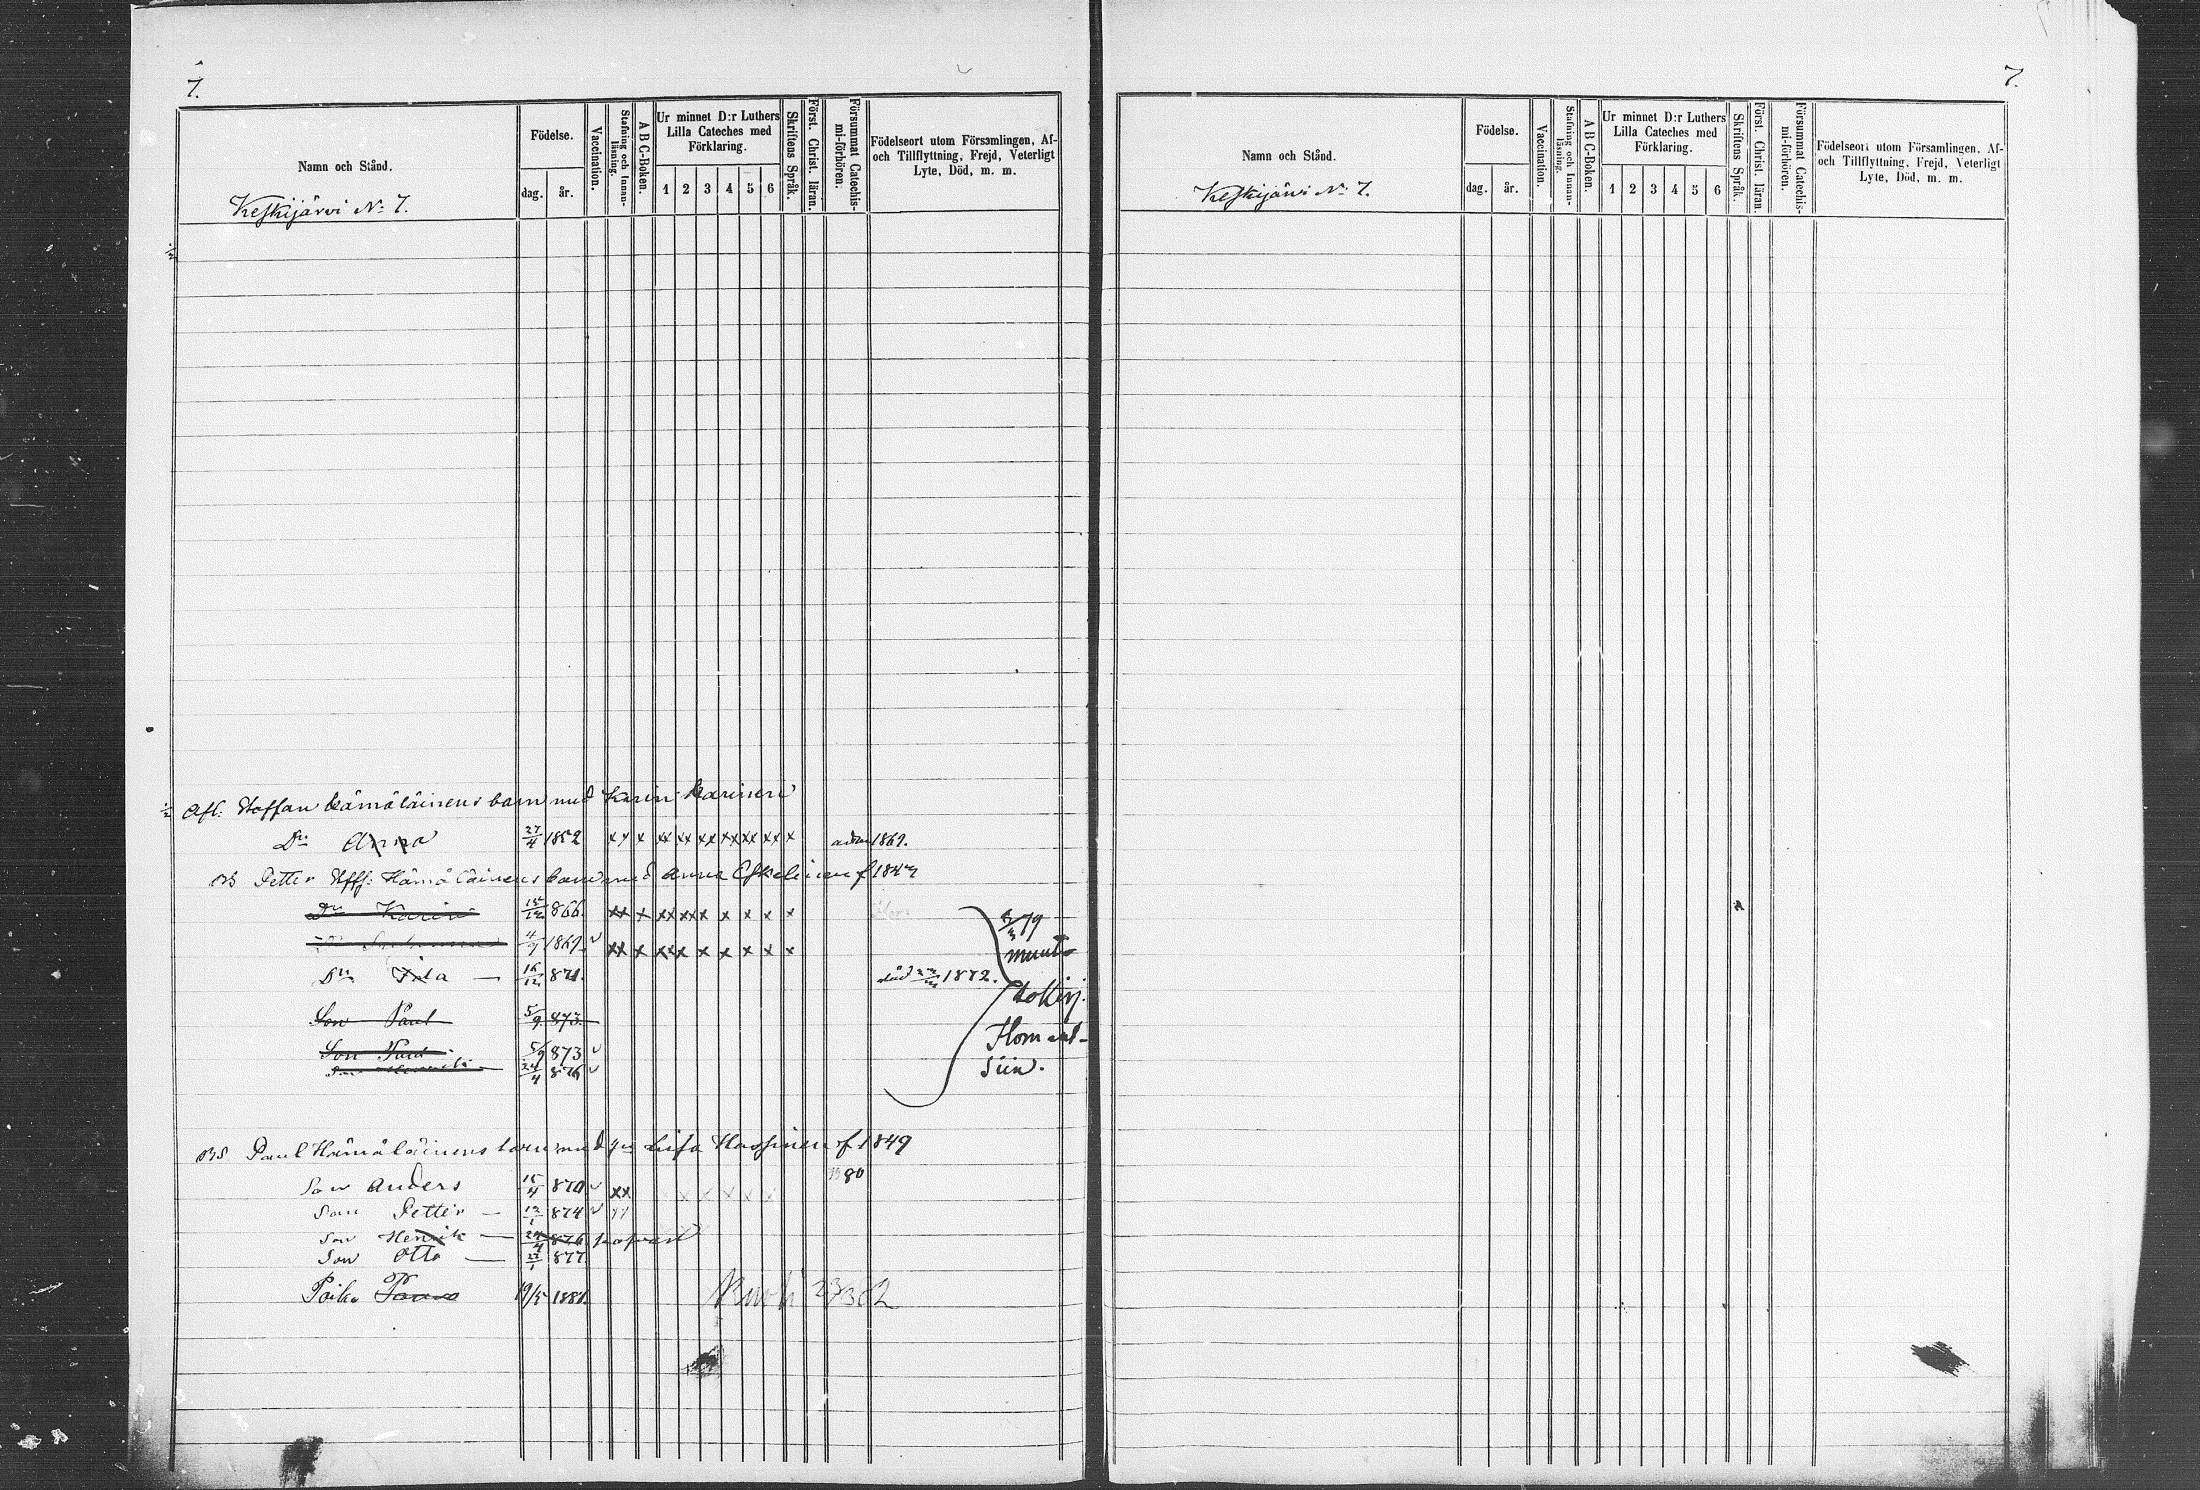 7.
Namn och Stånd.
Keskijärvi No 7.
Födelse.
dag. år.
Vaccination.
Stafning och Innanläsning.
A B C-Boken.
Ur minnet D:r Luthers Lilla Cateches med Förklaring.
1 2 3 4 5 6
Skriftens Språk.
Först. Christ. läran.
Försummat Catechismi-förhören.
Födelseort utom Församlingen, Af- och Tillflyttning, Frejd, Veterligt Lyte, Död, m. m.
Afl: Staffan Hämäläinens barn med Karin Karinen
Dr Anna 27/4 1852 x x x xx xx xx xx xx xx x 1869.
BS Petter Hämäläinens barn med Anna Eskelinen f 1847
Dr Karin 15/12 866. xx x xx xx x x x x x
4/9 1869. v xx x xx x x x x x x
Dr Ida — 16/12 871. död 1872.
Son Paul 5/9 873.
Son Paul 5/9 873 v
24/4 876 v
79
muut-
Kokinj.
Ilomant-
siin.
BS Paul Hämäläinens barn med Lisa Hassinen f 1849
80
Son Anders 15/4 870 v xx
Son Petter — 12/1 874 v
Son Henrik — 24/4 876
Son Otto — 877
Poika Paavo 19/5 1881. Kuoli 23/3 82
7.
Namn och Stånd.
Keskijärvi No 7.
Födelse.
dag. år.
Vaccination.
Stafning och Innanläsning.
A B C-Boken.
Ur minnet D:r Luthers Lilla Cateches med Förklaring.
1 2 3 4 5 6
Skriftens Språk.
Först. Christ. läran.
Försummat Catechismi-förhören.
Födelseort utom Församlingen, Af- och Tillflyttning, Frejd, Veterligt Lyte, Död, m. m.